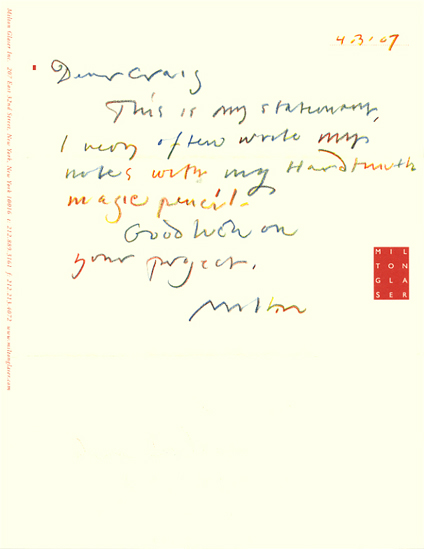 Milton Glaser Inc. 207 East 32nd Street, New York, New York 10016 t: 212.889.3161 f: 212.213.4072 www.miltonglaser.com
4·3·07
Dear Craig
This is my stationary,
I very often write my
notes with my Hardtmuth
magic pencil.
Good luck on
your project.
Milton
MIL
TON
GLA
SER